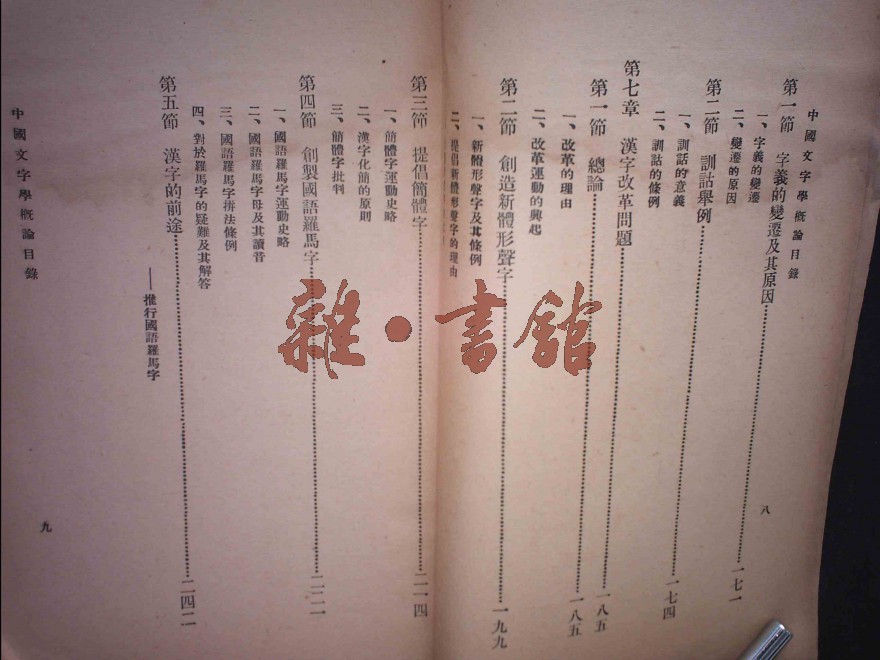 中國文字學概論目錄
第一節 字義的變遷及其原因……一七一
一、字義的變遷
二、變遷的原因
第二節 訓詁舉例……一七四
一、訓詁的意義
二、訓詁的條例
第七章 漢字改革問題……一八五
第一節 總論……一八五
一、改革的理由
二、改革運動的興起
第二節 創造新體形聲字……一九九
一、新體形聲字及其條例
二、提倡新體形聲字的理由
八
第三節 提倡簡體字……二一四
一、簡體字運動史略
二、漢字化簡的原則
三、簡體字批判
第四節 創製國語羅馬字……二二一
一、國語羅馬字運動史略
二、國語羅馬字母及其讀音
三、國語羅馬字拼法條例
四、對於羅馬字的疑難及其解答
第五節 漢字的前途……二四二
——推行國語羅馬字
中國文字學概論目錄
九
雜·書館